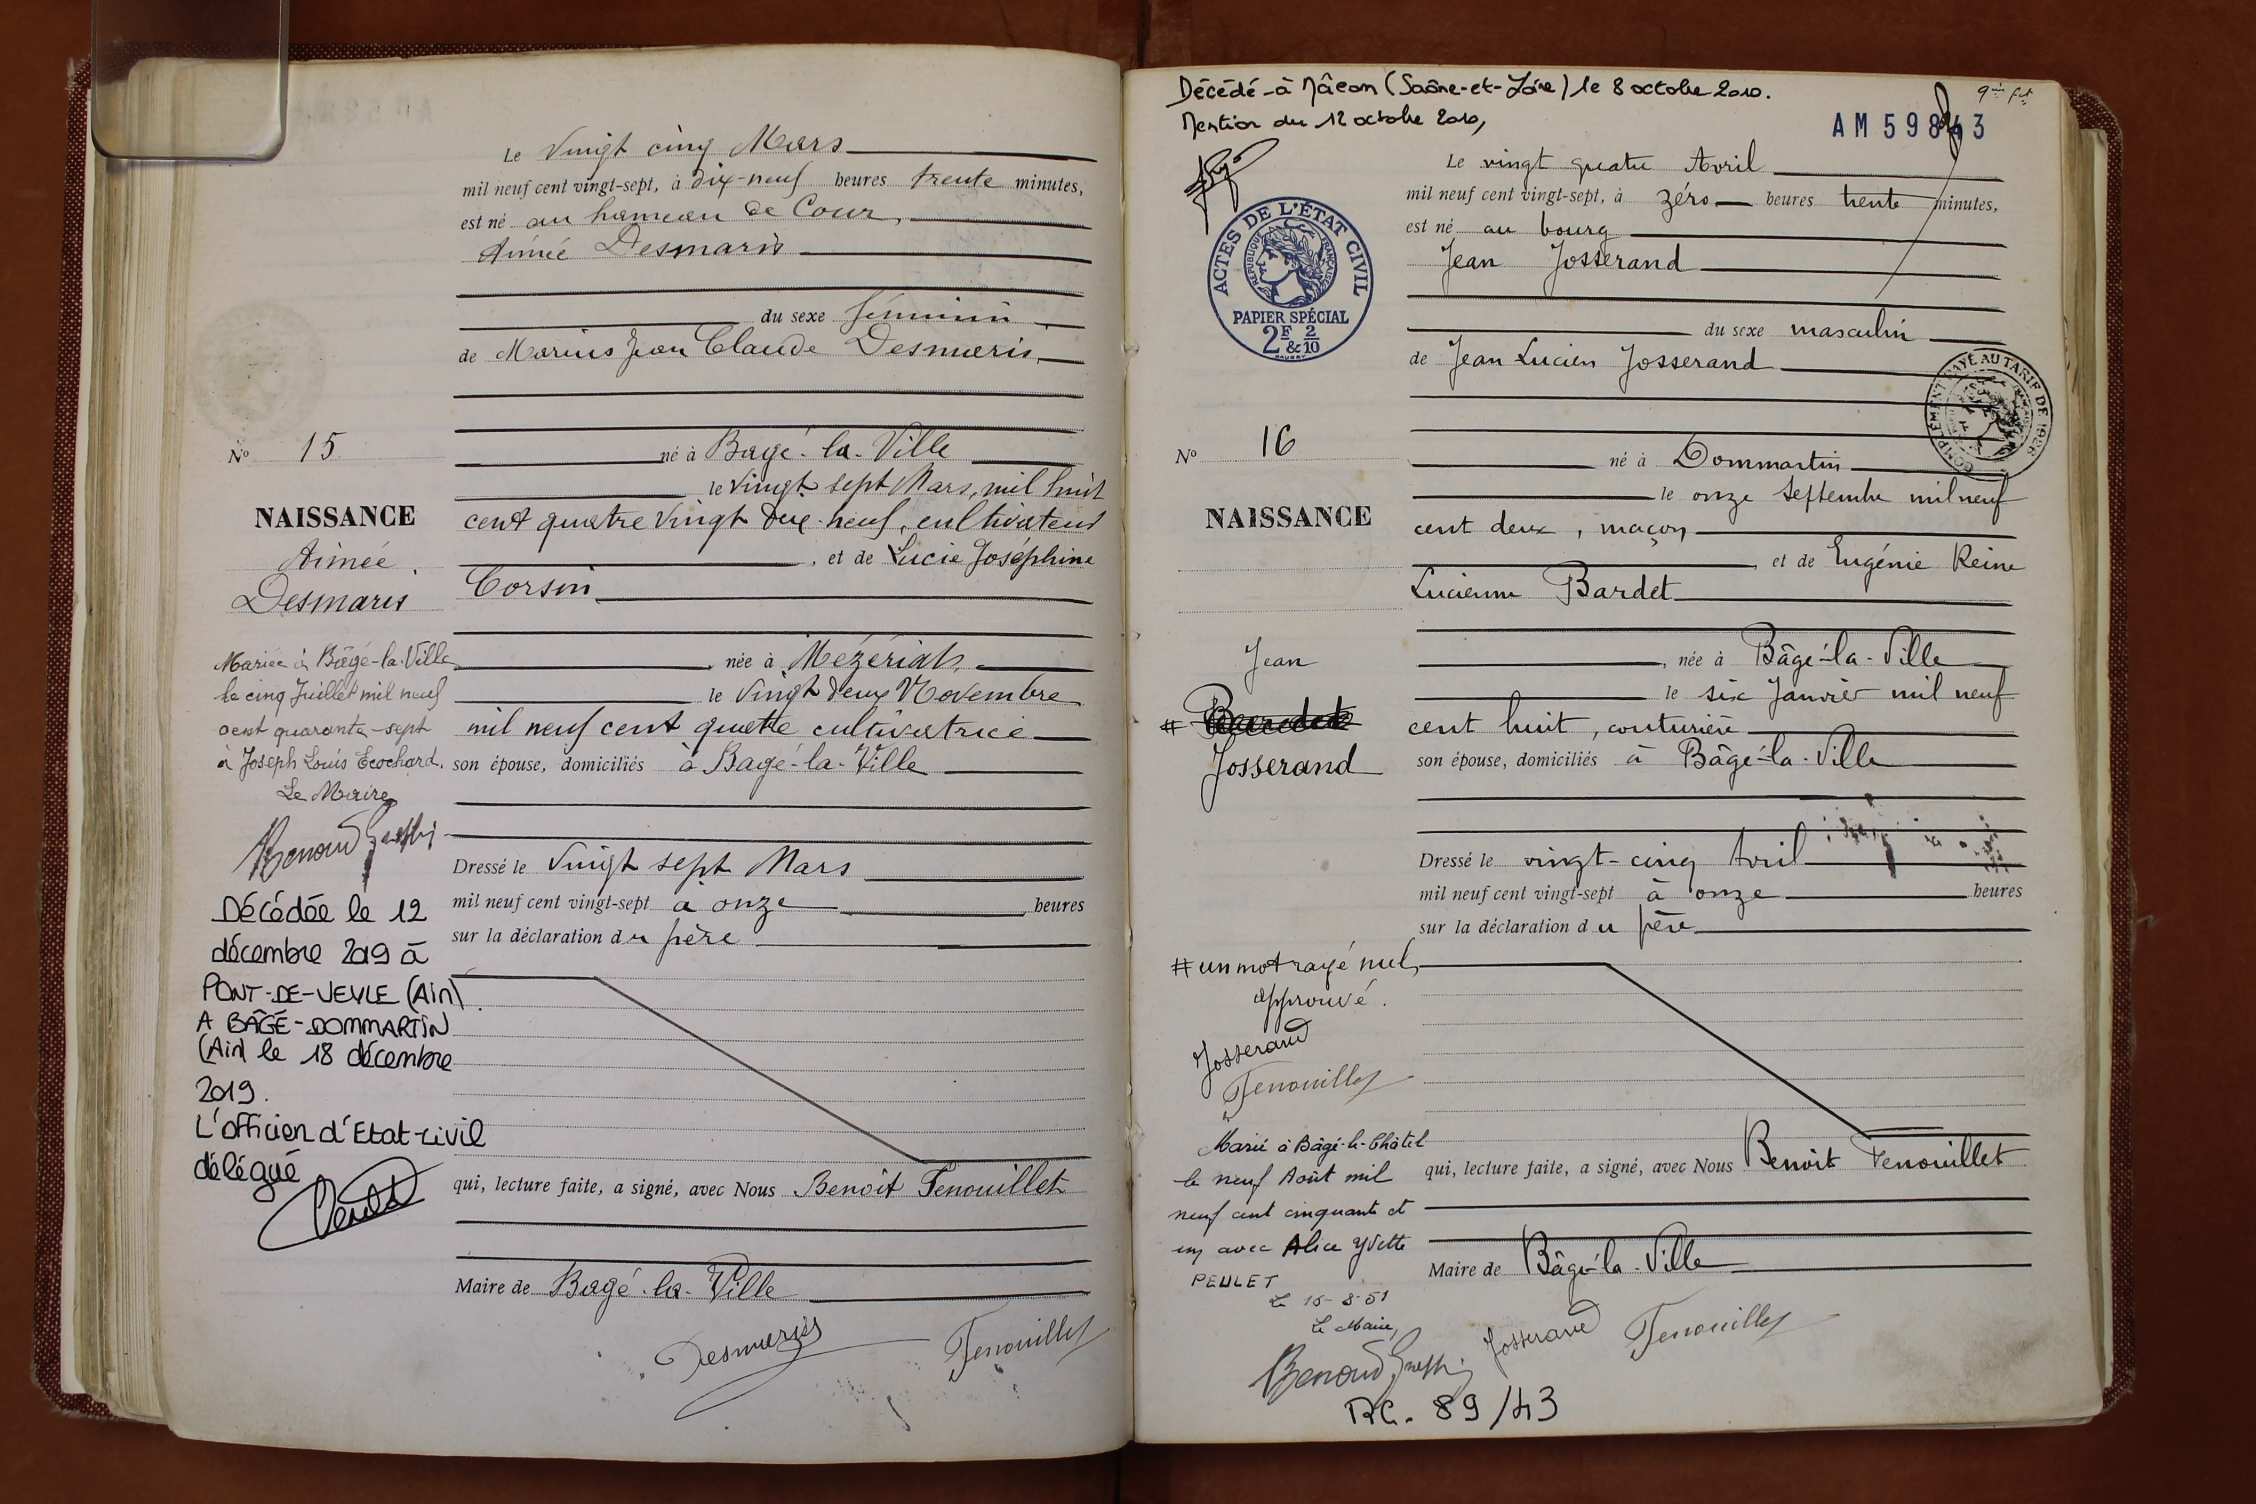 Le Vingt cinq Mars
mil neuf cent vingt-sept, à dix-neuf heures trente minutes,
est né au hameau de Cour,
Aimée Desmaris
du sexe féminin
de Marius Jean Claude Desmaris,
né à Bagé-la-Ville
le vingt sept Mars, mil huit
cent quatre vingt dix-neuf, cultivateur
, et de Lucie Joséphine
Corsin
née à Mézériat,
le vingt deux Novembre
mil neuf cent quatre cultivatrice
son épouse, domiciliés à Bagé-la-Ville
Dressé le vingt sept Mars
mil neuf cent vingt-sept à onze heures
sur la déclaration du père
qui, lecture faite, a signé, avec Nous Benoit Fenouillet
Maire de Bagé-la-Ville
Desmaris Fenouillet
N° 15
NAISSANCE
Aimée
Desmaris
Mariée à Bâgé-la-Ville
le cinq Juillet mil neuf
cent quarante-sept
à Joseph Louis Ecochard.
Le Maire
Décédée le 12
décembre 2019 à
PONT-DE-VEYLE (Ain)
A BÂGÉ-DOMMARTIN
(Ain) le 18 décembre
2019.
L'officier d'Etat-civil
délégué
Décédé à Mâcon (Saône-et-Loire) le 8 octobre 2010.
Mention du 12 octobre 2010,
AM 59843
ACTES DE L'ÉTAT CIVIL
RÉPUBLIQUE FRANÇAISE
PAPIER SPÉCIAL
2F & 2/10
COMPLÉMENT PAYÉ AU TARIF DE 1926
Le vingt quatre Avril
mil neuf cent vingt-sept, à zéro heures trente minutes,
est né au bourg
Jean Josserand
du sexe masculin
de Jean Lucien Josserand
né à Dommartin
le onze Septembre mil neuf
cent deux, maçon
et de Eugénie Reine
Lucienne Bardet
, née à Bâgé-la-Ville
le six Janvier mil neuf
cent huit, couturière
son épouse, domiciliés à Bâgé-la-Ville
Dressé le vingt-cinq Avril
mil neuf cent vingt-sept à onze heures
sur la déclaration du père
qui, lecture faite, a signé, avec Nous Benoit Fenouillet
Maire de Bâgé-la-Ville
Josserand Fenouillet
N° 16
NAISSANCE
Jean
Josserand
# un mot rayé nul,
approuvé.
Josserand
Fenouillet
Marié à Bâgé-le-Châtel
le neuf Août mil
neuf cent cinquante et
un avec Alice Yvette
PEULET
Le Maire,
89/43